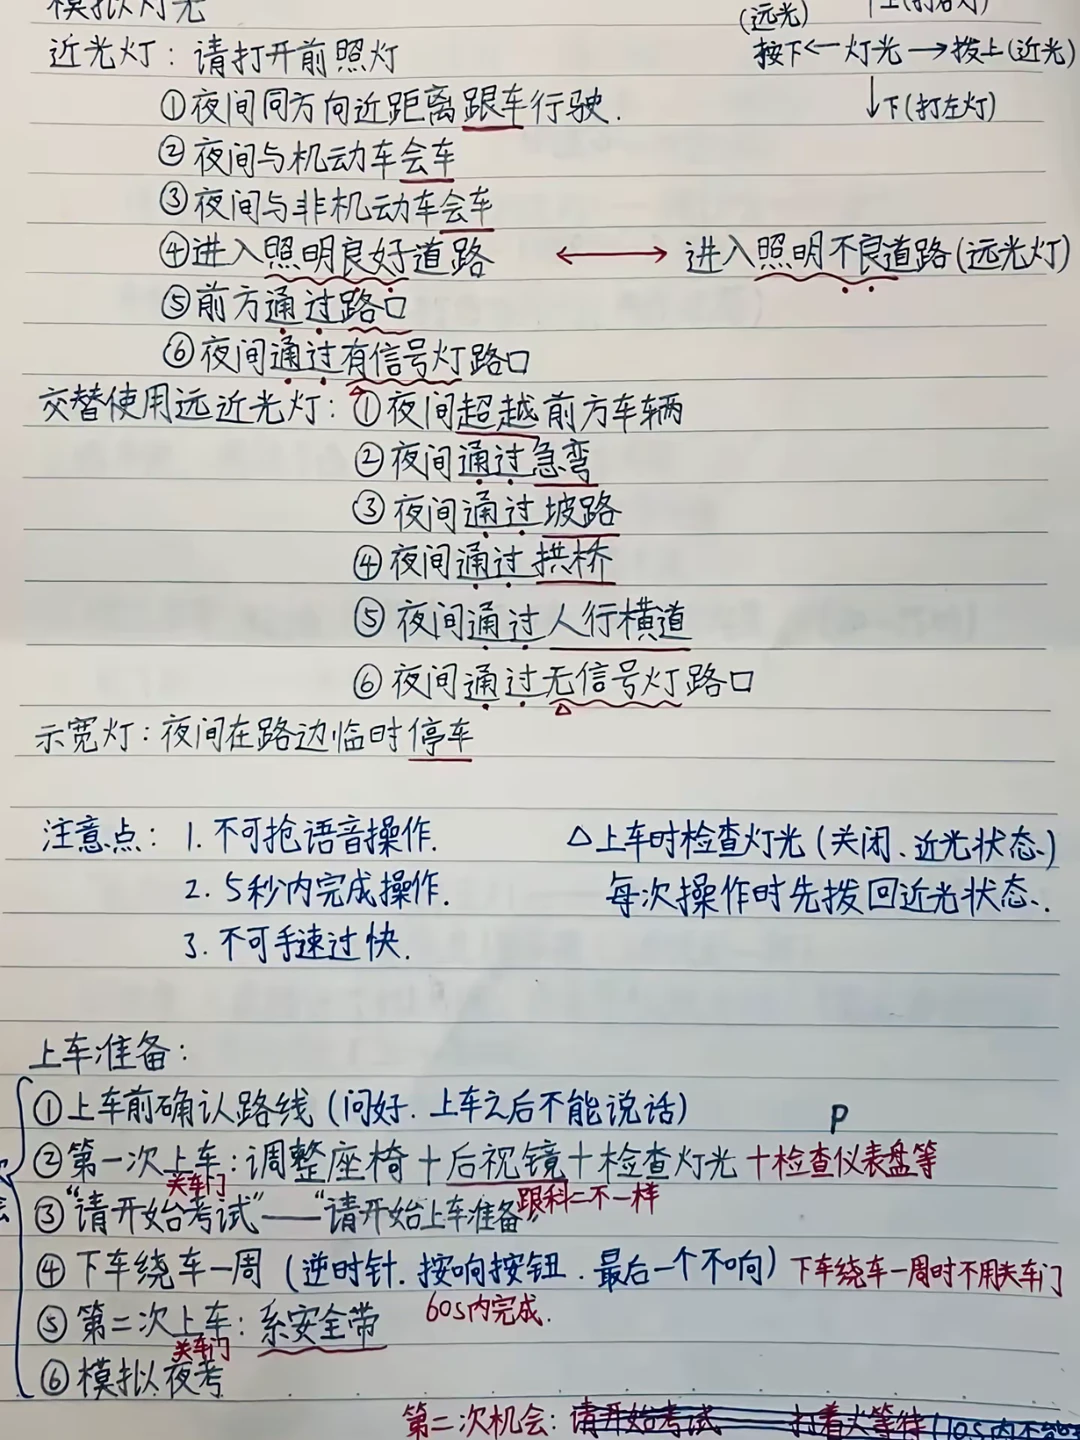 模拟灯光
近光灯：请打开前照灯
(远光)
上(打右灯)
按下←灯光→拨上(近光)
↓下(打左灯)
①夜间同方向近距离跟车行驶.
②夜间与机动车会车
③夜间与非机动车会车
④进入照明良好道路 ⟷ 进入照明不良道路(远光灯)
⑤前方通过路口
⑥夜间通过有信号灯路口
交替使用远近光灯：①夜间超越前方车辆
②夜间通过急弯
③夜间通过坡路
④夜间通过拱桥
⑤夜间通过人行横道
⑥夜间通过无信号灯路口
示宽灯：夜间在路边临时停车
注意点：1.不可抢语音操作. △上车时检查灯光(关闭、近光状态.)
2.5秒内完成操作. 每次操作时先拨回近光状态.
3.不可手速过快.
上车准备：
①上车前确认路线(问好.上车之后不能说话)
P
②第一次上车：调整座椅+后视镜+检查灯光+检查仪表盘等
关车门 跟科二不一样
③“请开始考试”——“请开始上车准备”
④下车绕车一周(逆时针.按响按钮.最后一个不响)下车绕车一周时不用关车门
60s内完成.
⑤第二次上车：系安全带
关车门
⑥模拟夜考
第二次机会：请开始考试——打着火等待